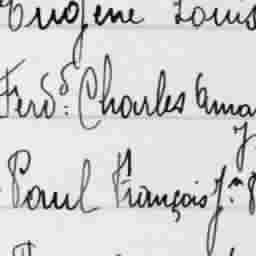 Eugène Louis
Ferd.d Charles Ama
Paul François J.n